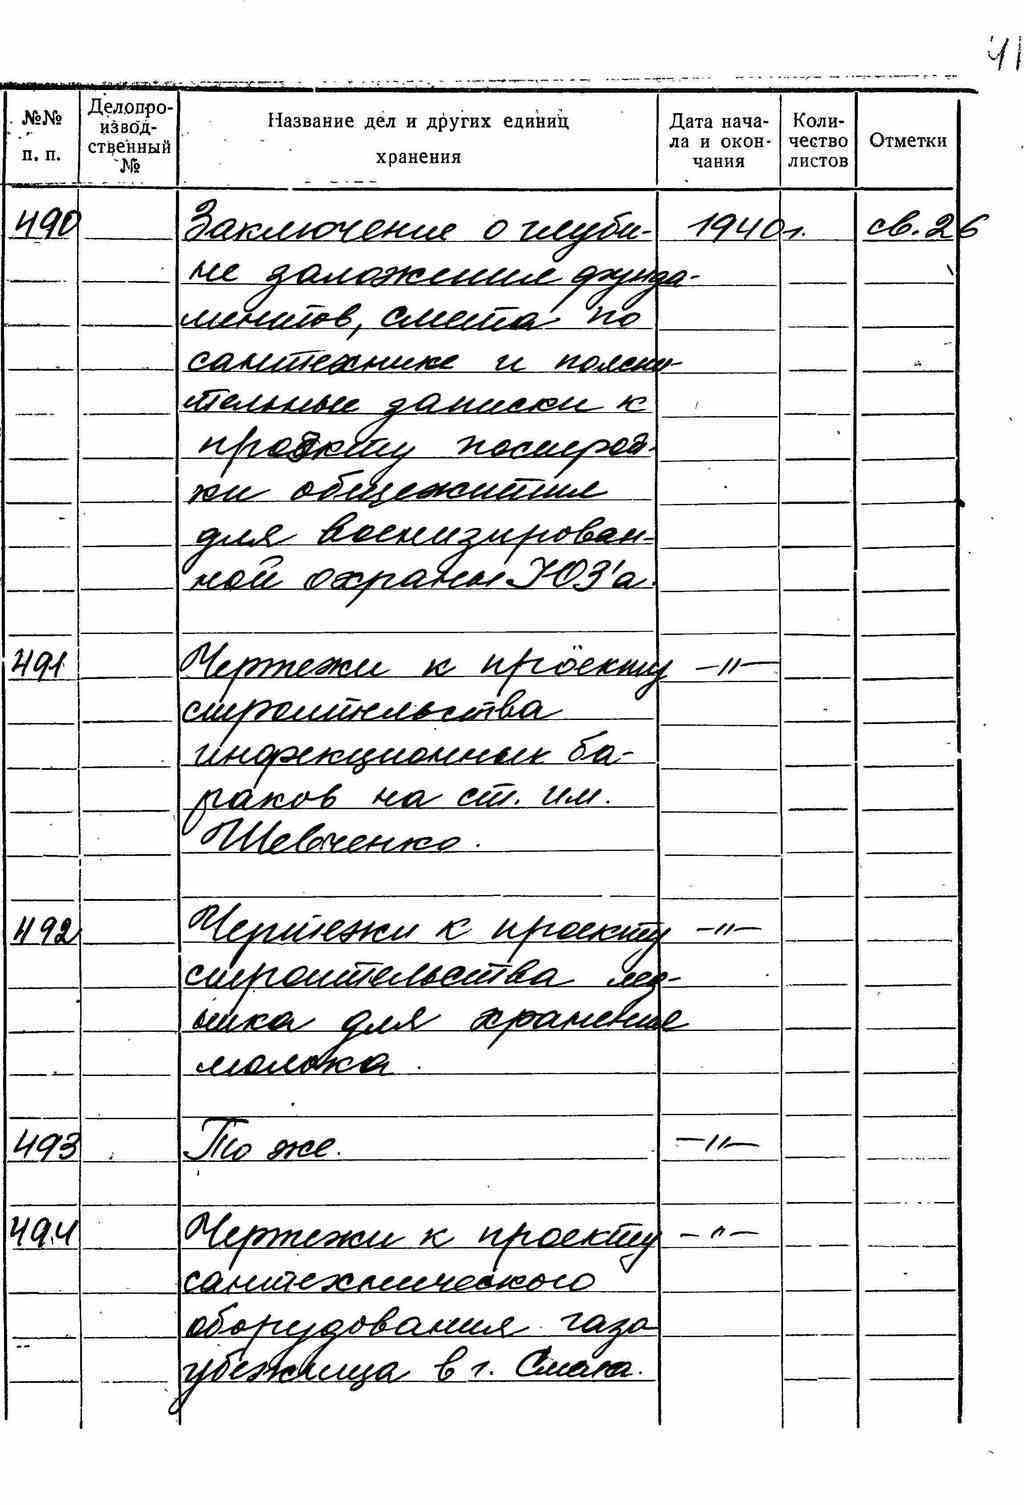 41
№№ п. п.
Делопро-
извод-
ственный
№
Название дел и других единиц
хранения
Дата нача-
ла и окон-
чания
Коли-
чество
листов
Отметки
490 Заключение о глуби- 1940г. св. 26
не заложения фунда-
ментов, смета по
сантехнике и поясни-
тельные записки к
проекту построй-
ки общежития
для военизирован-
ной охраны ЮЗ'а.
491 Чертежи к проекту —"—
строительства
инфекционных ба-
раков на ст. им.
Шевченко.
492 Чертежи к проекту —"—
строительства лед-
ника для хранения
молока.
493 То же. —"—
494 Чертежи к проекту —"—
сантехнического
оборудования газо
убежища в г.